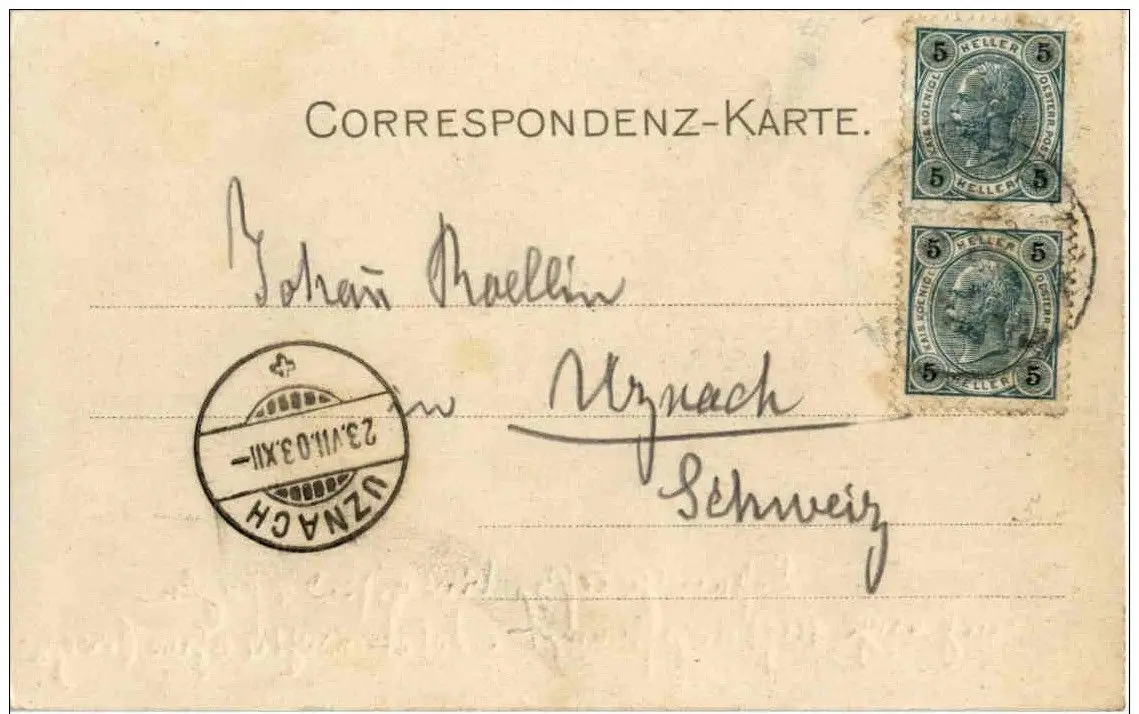 CORRESPONDENZ-KARTE.
5 HELLER 5
KAIS. KOENIGL. OESTERR. POST
5 HELLER 5
5 HELLER 5
KAIS. KOENIGL. OESTERR.
5 HELLER 5
Johañ Roellin
in Uznach
Schweiz
23.VII.03.XII–
UZNACH